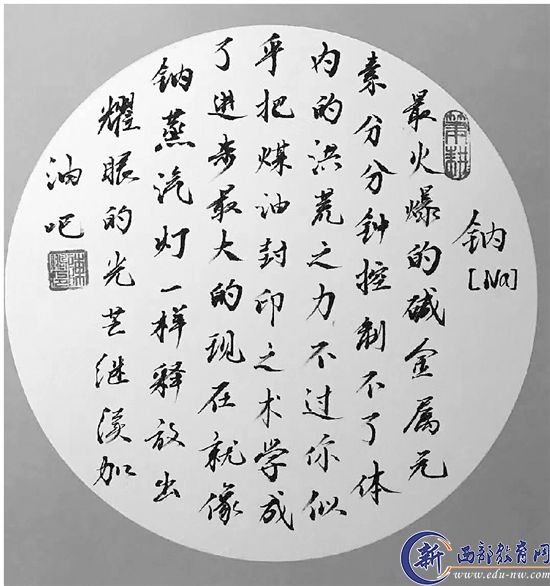 钠
[Na]
最火爆的碱金属元
素分分钟控制不了体
内的洪荒之力不过你似
乎把煤油封印之术学成
了进步最大的现在就像
钠蒸汽灯一样释放出
耀眼的光芒继续加
油吧
笔耕
新
西部教育网
www.edu-nw.com